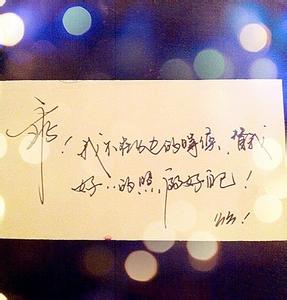 乖！我不在你身边的时候，替我
好好的照顾好自己！